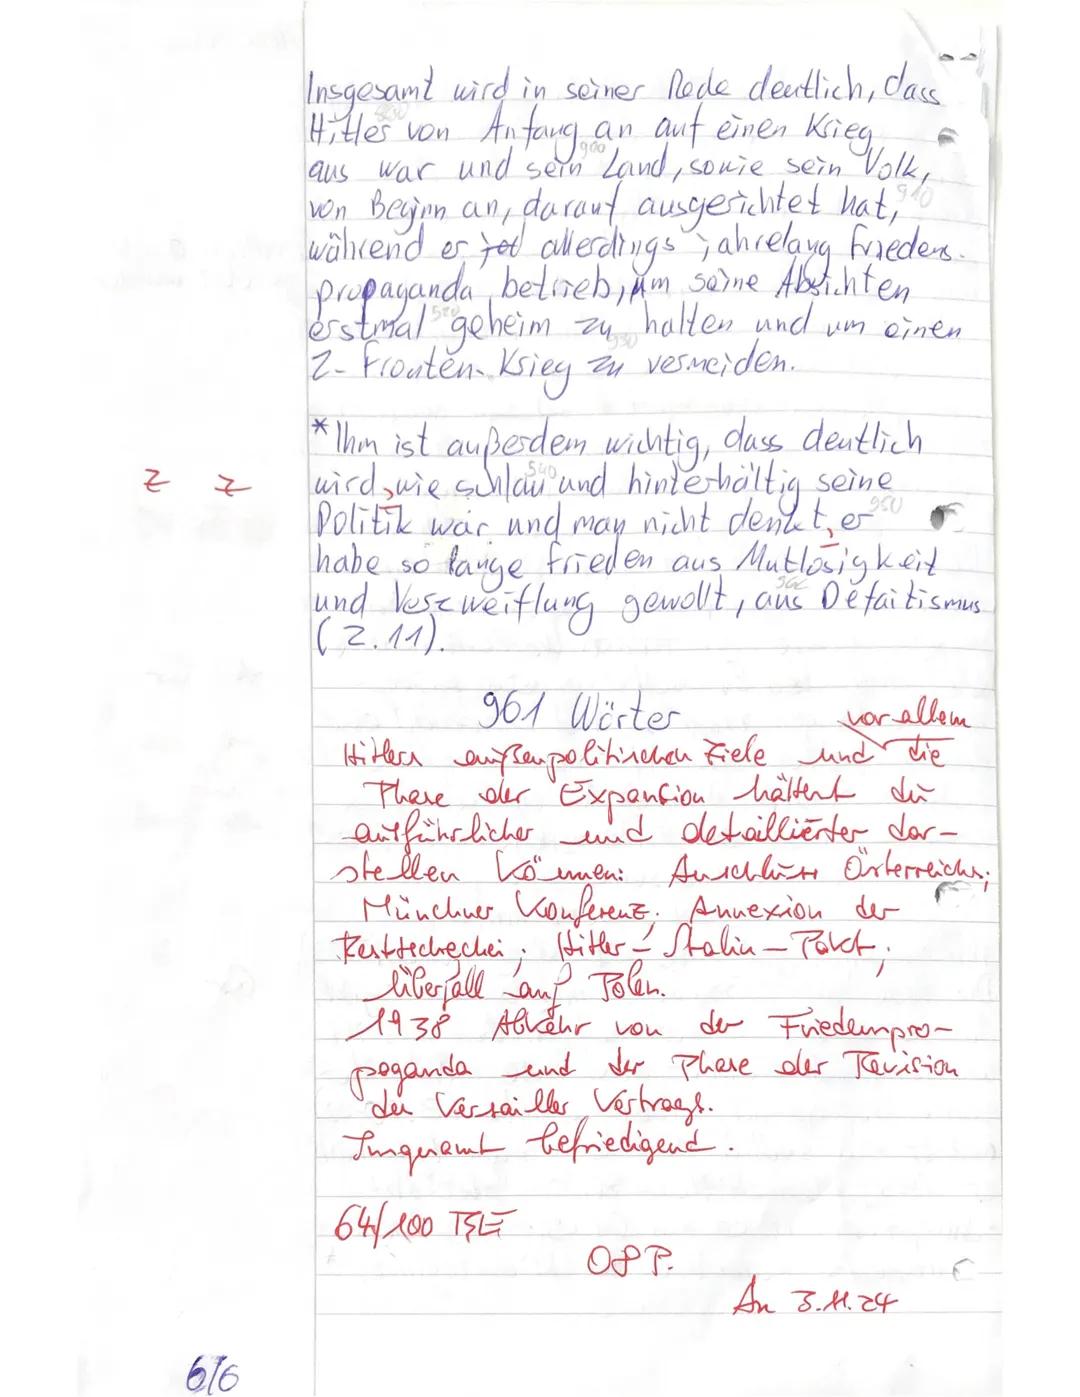 Insgesamt wird in seiner Rede deutlich, dass
Hitler von Anfang an auf einen Krieg
900
aus war und sein Land, sowie sein Volk,
910
von Beginn an, darauf ausgerichtet hat,
während er allerdings jahrelang Friedens-
propaganda betrieb, um seine Absichten
erstmal geheim zu halten und um einen
930
2-Fronten-Krieg zu vermeiden.
*Ihm ist außerdem wichtig, dass deutlich
540
Z Z wird, wie schlau und hinterhältig seine
950
Politik war und man nicht denkt, er
habe so lange Frieden aus Mutlosigkeit
und Verzweiflung gewollt, aus Defaitismus
(Z. 11).
961 Wörter
vor allem
Hitlers außenpolitischen Ziele und die
Phase der Expansion hättest du
ausführlicher und detaillierter dar-
stellen können: Anschluss Österreichs;
Münchner Konferenz. Annexion der
Resttschechei; Hitler-Stalin-Pakt;
Überfall auf Polen.
1938 Abkehr von der Friedenspro-
paganda und der Phase der Revision
des Versailler Vertrags.
Insgesamt befriedigend.
64/100
08 P.
3.11.24
6/6